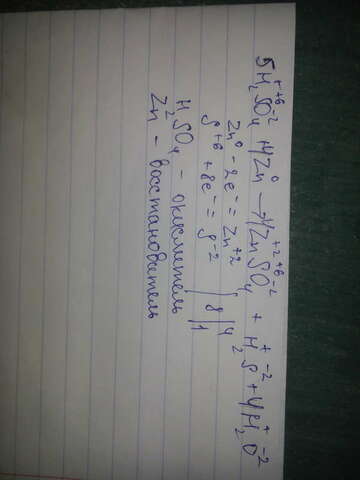 5H₂⁺S⁺⁶O₄⁻² + 4Zn⁰ → 4Zn⁺²S⁺⁶O₄⁻² + H₂⁺S⁻² + 4H₂⁺O⁻²
Zn⁰ - 2e⁻ = Zn⁺² | 8 | 4
S⁺⁶ + 8e⁻ = S⁻² | 2 | 1
H₂SO₄ - окислитель
Zn - восстановитель